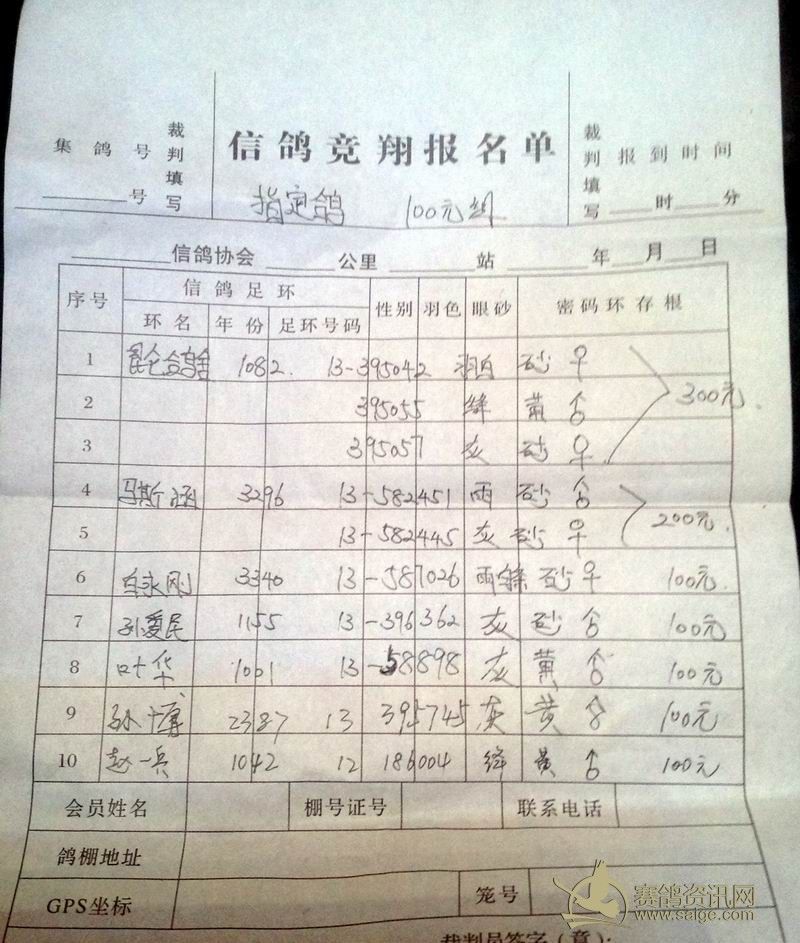 集鸽号 裁判填写 信鸽竞翔报名单 裁判填写 报到时间
______号 ____时____分
指定鸽 100元组
______信鸽协会______公里______站______年___月___日
序号 信鸽足环 性别 羽色 眼砂 密码环存根
环名 年份 足环号码
1 昆仑鸽舍 1082. 13-395042 羽白 砂 ♀
2 395055 绛 黄 ♂ 300元.
3 395057 灰 砂 ♀
4 马斯涵 3296 13-582451 雨 砂 ♂
200元.
5 13-582445 灰 砂 ♀
6 白永刚 3340 13-587026 雨绛 砂 ♀ 100元.
7 孙爱民 1155 13-396362 灰 砂 ♂ 100元
8 叶华 1001 13-58898 灰 黄 ♂ 100元
9 孙 2387 13 395745 灰 黄 ♂ 100元
10 赵一兵 1042 12 186004 绛 黄 ♂ 100元
会员姓名 棚号证号 联系电话
鸽棚地址
GPS坐标 笼号
裁判员签字(章):
赛鸽资讯网
www.saige.com